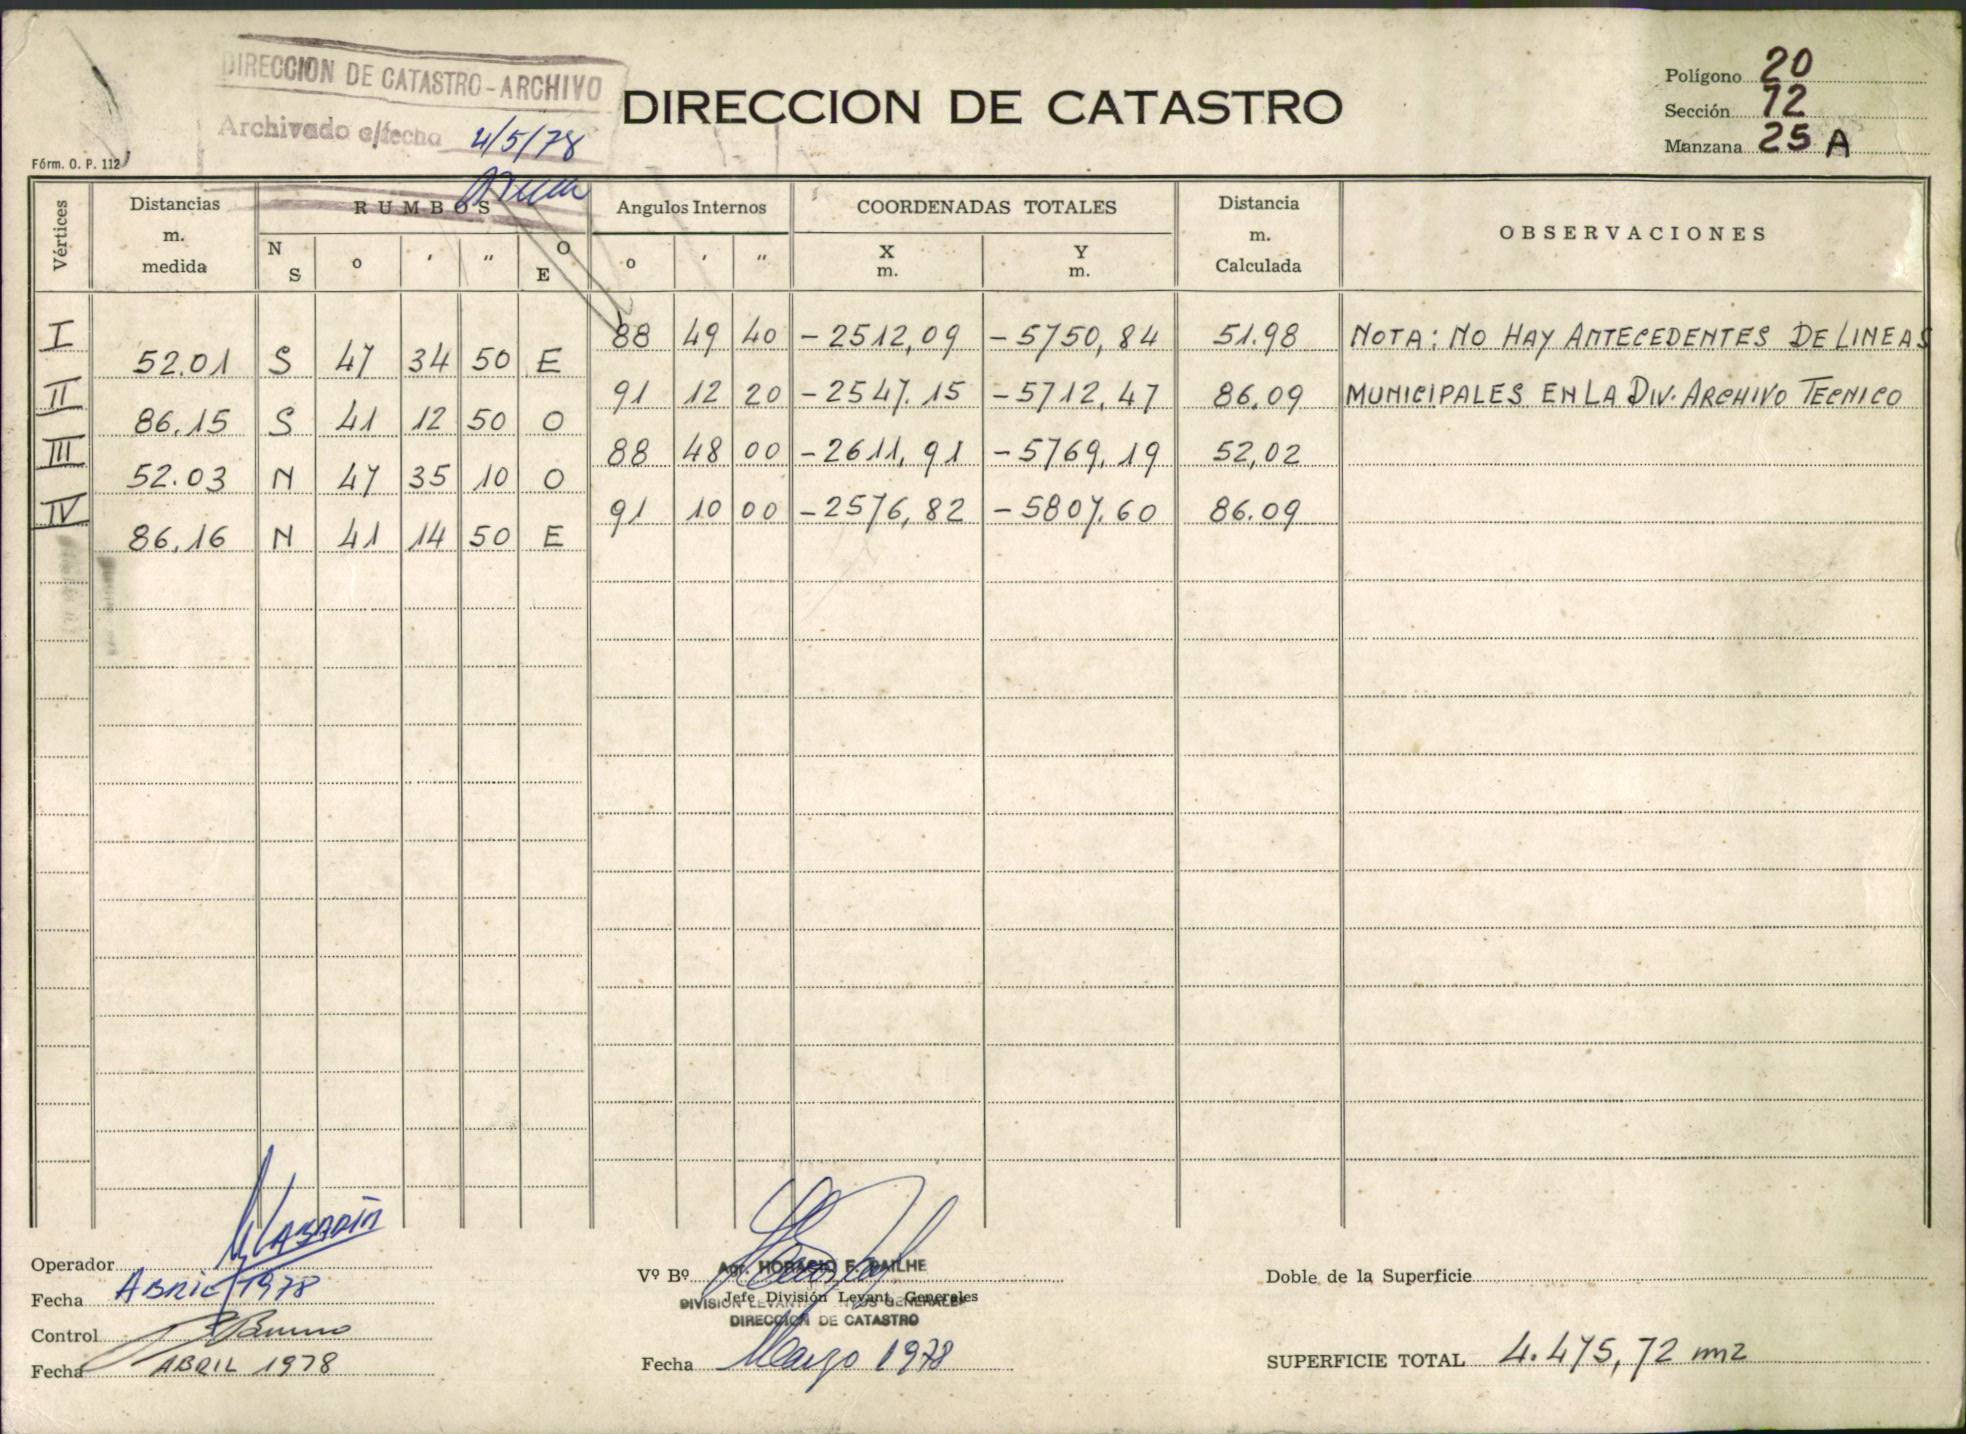 DIRECCION DE CATASTRO - ARCHIVO
Archivado c/fecha 4/5/78
DIRECCION DE CATASTRO
Polígono 20
Sección 72
Manzana 25 A
Fórm. O. P. 112
Vértices Distancias m. medida RUMBOS Angulos Internos COORDENADAS TOTALES Distancia m. Calculada OBSERVACIONES
N S o ' " O E o ' " X m. Y m.
I 88 49 40 -2512,09 -5750,84 51.98 NOTA: NO HAY ANTECEDENTES DE LINEAS
52.01 S 47 34 50 E
II 91 12 20 -2547.15 -5712,47 86.09 MUNICIPALES EN LA DIV. ARCHIVO TECNICO
86.15 S 41 12 50 O
III 88 48 00 -2611,91 -5769,19 52,02
52.03 N 47 35 10 O
IV 91 10 00 -2576,82 -5807.60 86.09
86.16 N 41 14 50 E
Operador
Fecha ABRIL 1978
Control
Fecha ABRIL 1978
Vº Bº Agr. HORACIO F. DAILHE
Jefe División Levant. Generales
DIRECCION DE CATASTRO
Fecha Marzo 1978
Doble de la Superficie
SUPERFICIE TOTAL 4.475,72 m2